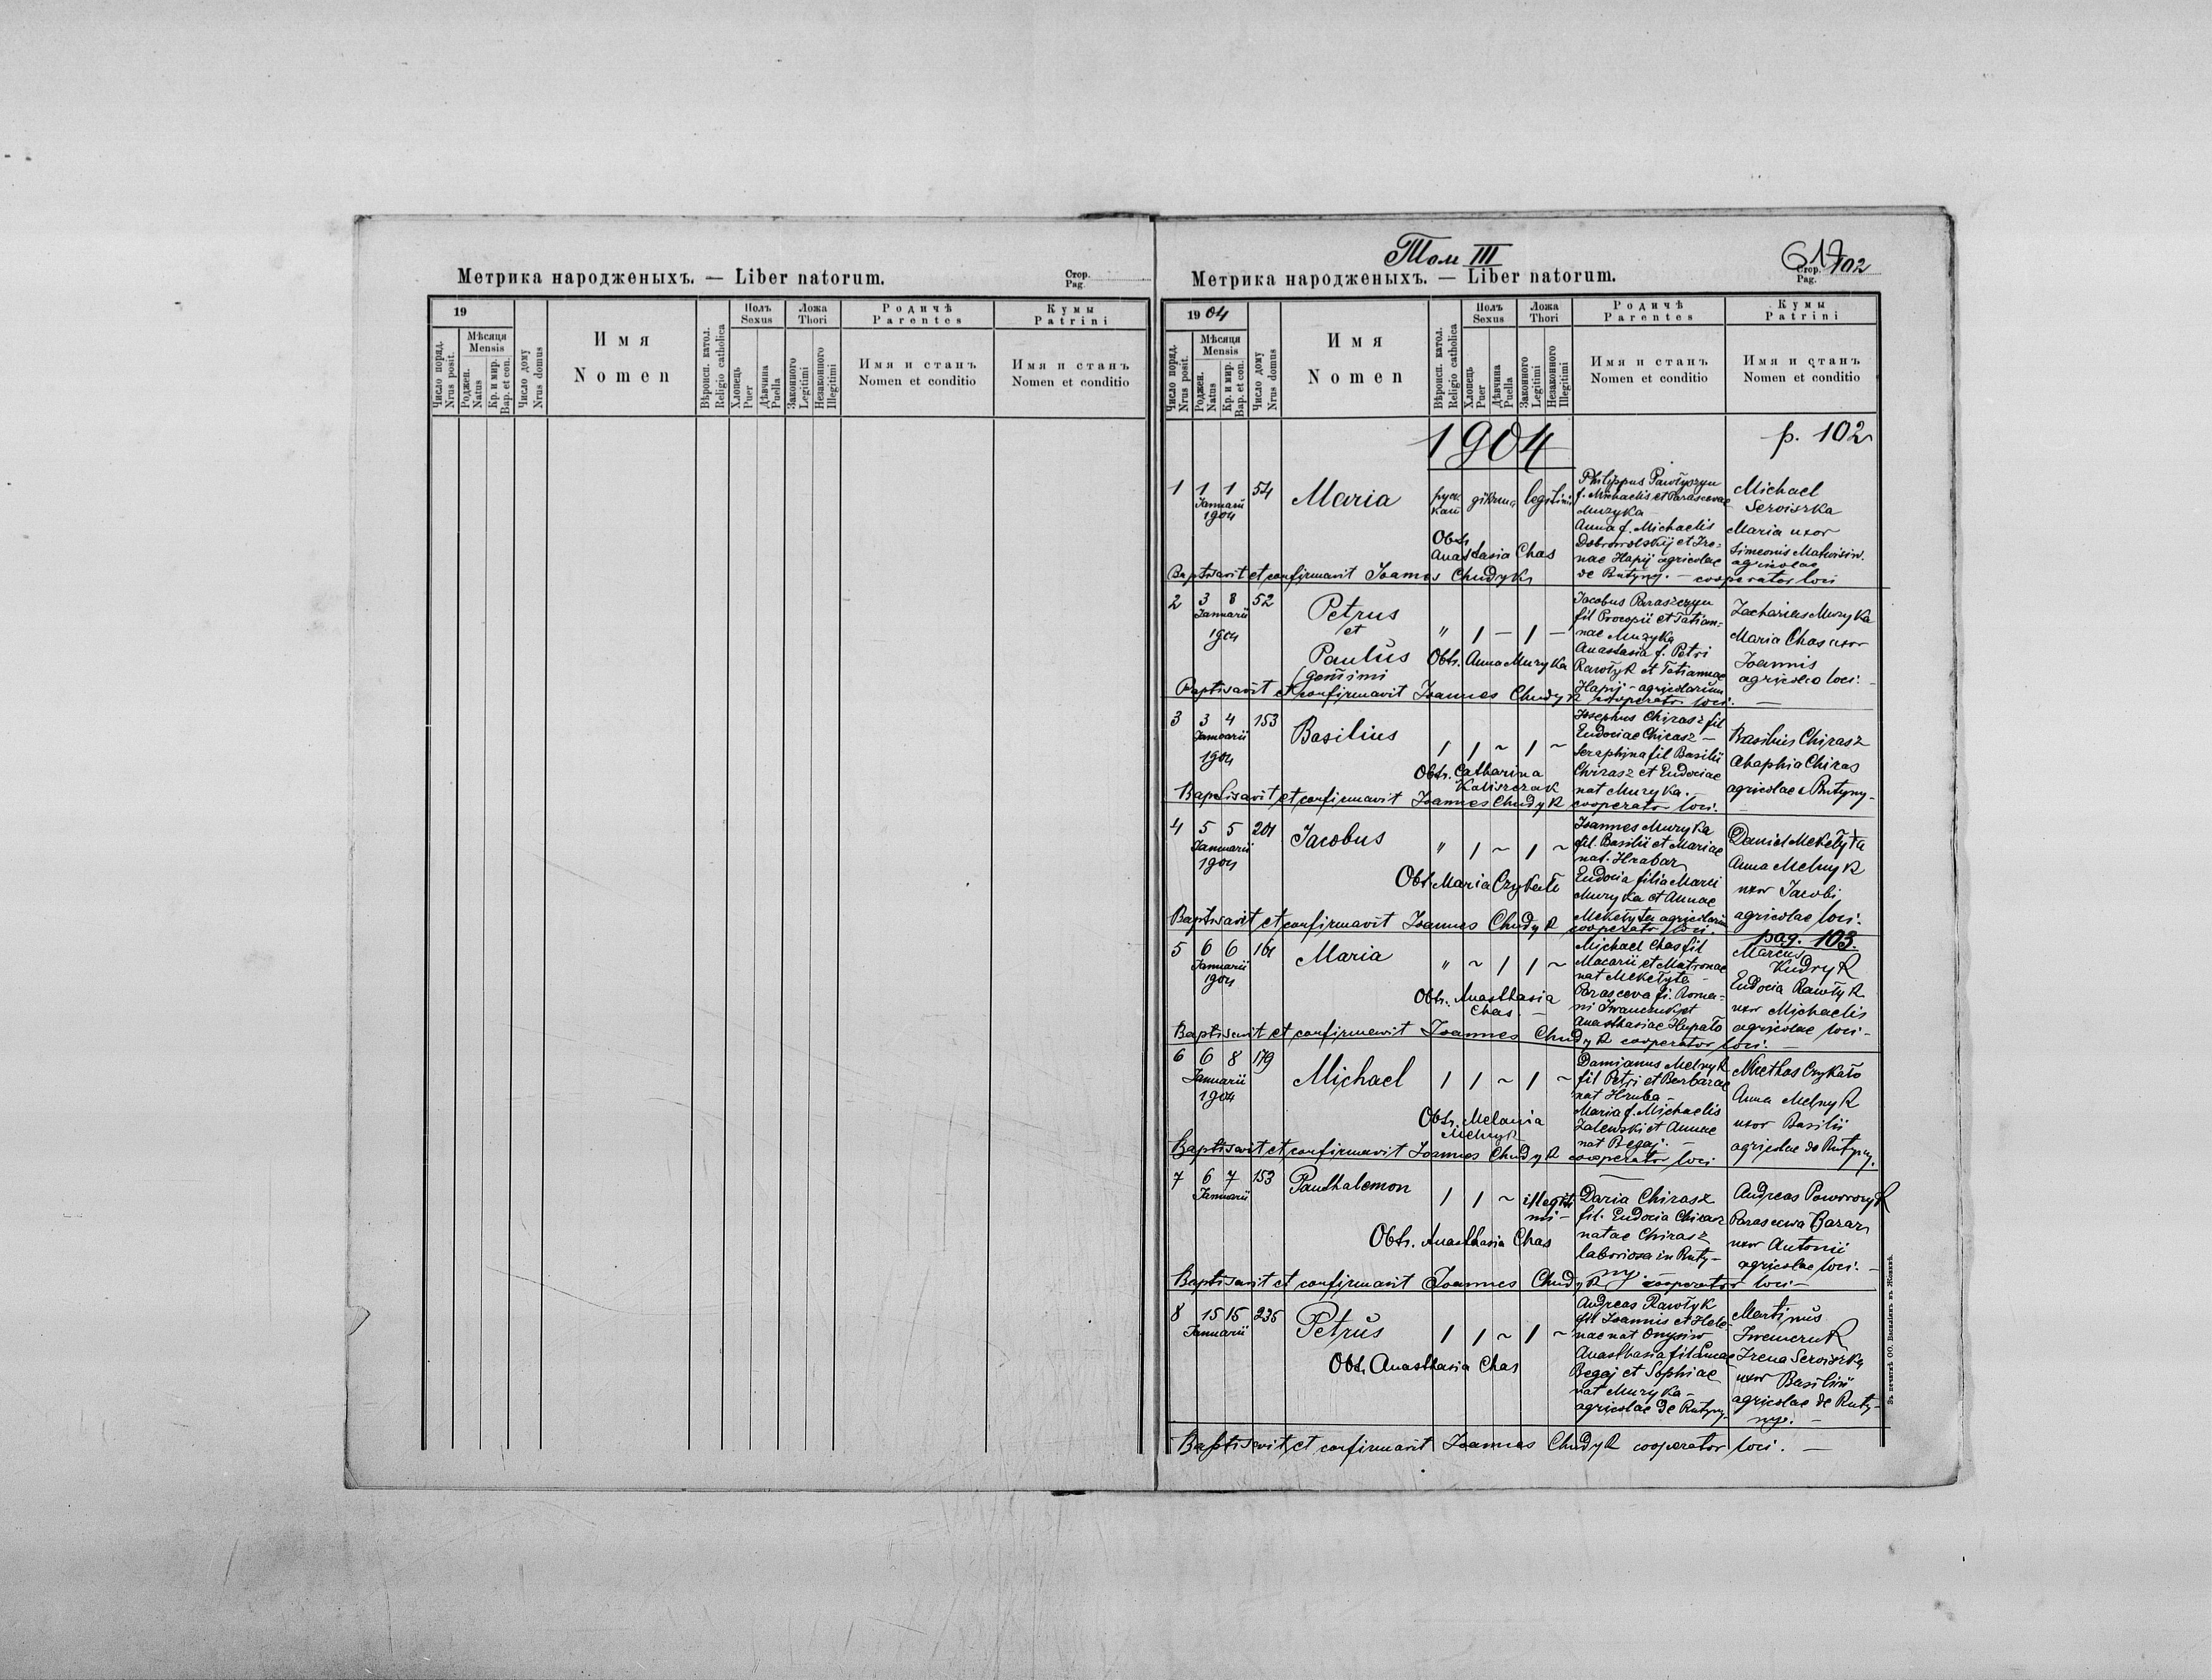 Метрика народженыхъ. — Liber natorum.
Стор.
Pag.
19
Число поряд.
Nrus posit.
Мѣсяця
Mensis
Роджен.
Natus
Кр. и мир.
Bap. et con.
Число дому
Nrus domus
Имя
Nomen
Вѣроисп. катол.
Religio catholica
Полъ
Sexus
Хлопець
Puer
Дѣвчина
Puella
Ложа
Thori
Законного
Legitimi
Незаконного
Illegitimi
Родичѣ
Parentes
Имя и станъ
Nomen et conditio
Кумы
Patrini
Имя и станъ
Nomen et conditio
Том III
Метрика народженыхъ. — Liber natorum.
Стор. 102
Pag.
1904
Число поряд.
Nrus posit.
Мѣсяця
Mensis
Роджен.
Natus
Кр. и мир.
Bap. et con.
Число дому
Nrus domus
Имя
Nomen
Вѣроисп. катол.
Religio catholica
Полъ
Sexus
Хлопець
Puer
Дѣвчина
Puella
Ложа
Thori
Законного
Legitimi
Незаконного
Illegitimi
Родичѣ
Parentes
Имя и станъ
Nomen et conditio
Кумы
Patrini
Имя и станъ
Nomen et conditio
1904
p. 102
1 1 1 54
Januarii
1904
Maria
legitimi
Obst.
Anastasia Chas
Philippus Pawłyszyn
f. Michaelis et Parascevae
Muzyka
Anna f. Michaelis
Dobrowolskij et Ire-
nae Hapij agricolae
de Rutyny. —
Michael
Serwiszka
Maria uxor
Simeonis
agricolae
Baptisavit et confirmavit Joannes Chudyk cooperator loci
2 3 8 52
Januarii
1904
Petrus
et
Paulus
(gemini
" 1 — 1 —
Obtr. Anna Muzyka
Jacobus Paraszczyn
fil Procopii et Tatian-
nae Muzyka
Anastasia f. Petri
Rawłyk et Tatiannae
Hapij - agricolarum
Zacharias Muzyka
Maria Chas uxor
Joannis
agricolae loci.
Baptisavit et confirmavit Joannes Chudyk cooperator loci. —
3 3 4 153
Januarii
1904
Basilius
1 1 ~ 1 ~
Obtr. Catharina
Josephus Chirasz fil
Eudociae Chirasz —
Seraphina fil Basilii
Chirasz et Eudociae
nat Muzyka. —
Basilius Chirasz
Ahaphia Chiras
agricolae e Rutyny-
Baptisavit et confirmavit Joannes Chudyk cooperator loci.
4 5 5 201
Januarii
1904
Jacobus
" 1 ~ 1 ~
Obt. Maria
Joannes Muzyka
fil. Basilii et Mariae
nat. Hrabar
Eudocia filia Marci
Muzyka et Annae
Mekełyta agricolarum
Daniel Mekełyta
Anna Melnyk
uxor Jacobi
agricolae loci.
Baptisavit et confirmavit Joannes Chudyk cooperator loci.
pag. 103.
5 6 6 161
Januarii
1904
Maria
" ~ 1 1 ~
Obtr. Anasthasia
Chas —
Michael Chas fil
Macarii et Matronae
nat Mekełyta —
Parasceva fi. Roma-
ni Iwanczuk et
Anasthasiae Hupało
Marcus
Kudryk
Eudocia Rawłyk
uxor Michaelis
agricolae loci -
Baptisavit et confirmavit Joannes Chudyk cooperator loci. —
6 6 8 179
Januarii
1904
Michael
1 1 ~ 1 ~
Obtr. Melania
Melnyk
Damianus Melnyk
fil Petri et Barbarae
nat Hruba —
Maria f. Michaelis
Zalewski et Annae
nat Begaj. —
Anna Melnyk
uxor Basilii
agricolae de Rutyny.
Baptisavit et confirmavit Joannes Chudyk cooperator loci
7 6 7 153
Januarii
Panthalemon
1 1 ~ illegiti
mi -
Obtr. Anasthasia Chas
Daria Chirasz
fil. Eudocia Chirasz
natae Chirasz
laboriosa in Ruty-
ny
Andreas Poworoznyk
Parascewa Bazar
uxor Antonii
agricolae loci. —
Baptisavit et confirmavit Joannes Chudyk cooperator loci —
8 15 15 235
Januarii
Petrus
1 1 ~ 1 ~
Obt. Anasthasia Chas
Andreas Rawłyk
fil Joannis et Hele-
nae nat Onysiw
Anasthasia fil Lucae
Begaj et Sophiae
nat Muzyka —
agricolae de Rutyny-
Martinus
Irena Serwiszka
uxor Basilii
agricolae de Ruty-
ny. —
Baptisavit et confirmavit Joannes Chudyk cooperator loci. —
Въ печатнѣ ОО. Василіянъ въ Жовквѣ.